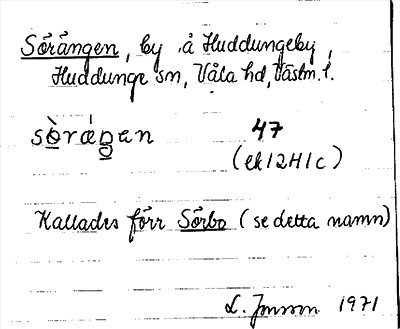 Sörängen, by å Huddungeby,
Huddunge sn, Våla hd, Västm. l.
47
(ek 12H1c)
Kallades förr Sörbo (se detta namn)
L. Jonson 1971